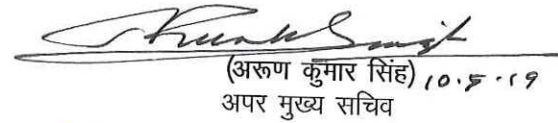 (अरूण कुमार सिंह) 10.5.19
अपर मुख्य सचिव